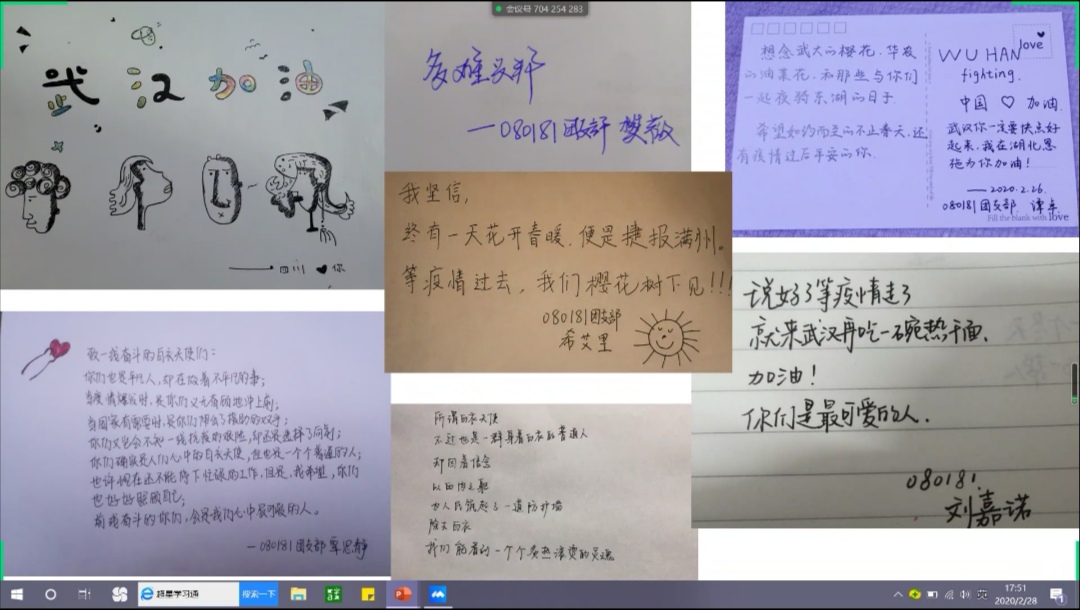 会议号 704 254 283
武汉加油
四川 ♥ 你
多难兴邦
—080181团支部 樊薇
想念武大的樱花，华农
的油菜花，和那些与你们
一起夜骑东湖的日子
希望如约而至的不止春天，还
有疫情过后平安的你.
WUHAN
love
fighting.
中国 ♡ 加油.
武汉你一定要快点好
起来，我在湖北恩
施为你加油！
——2020.2.26.
080181团支部 谭卓
Fill the blank with love
我坚信，
终有一天花开春暖，便是捷报满州。
等疫情过去，我们樱花树下见!!!
080181团支部
希艾里
说好了等疫情走了
就来武汉再吃一碗热干面.
加油！
你们是最可爱的人.
080181.
刘嘉诺
致一线奋斗的白衣天使们：
你们也是平凡人，却在做着不平凡的事；
疫情爆发时，是你们义无反顾地冲上前；
当国家有需要时，是你们伸出了援助的双手；
你们又岂会不知一线抗疫的艰险，却还是选择了向前；
你们确实是人们心中的白衣天使，但也是一个个普通的人；
也许现在还不能停下忙碌的工作，但是，我希望，你们
也好好照顾自己；
前线奋斗的你们，会是我们心中最可爱的人。
—080181团支部 覃思静
所谓白衣天使
不过也是一群身着白衣的普通人
却因着信念
以血肉之躯
为人民筑起了一道防护墙
除去白衣
我们能看到一个个炙热滚烫的灵魂
超星学习通
搜索一下
英
17:51
2020/2/28